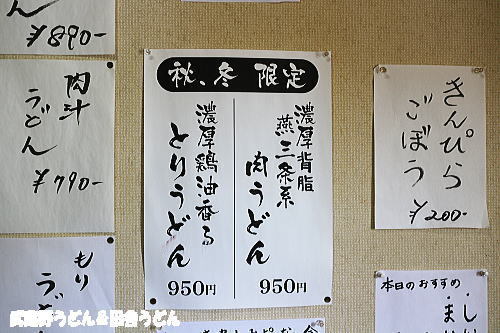 ん
¥890-
肉汁
うどん
¥790-
もり
うど
秋、冬 限定
濃厚背脂
燕三条系
肉うどん
950円
濃厚鶏油香る
とりうどん
950円
きんぴら
ごぼう
¥200-
本日のおすすめ
武蔵野うどん&田舎うどん